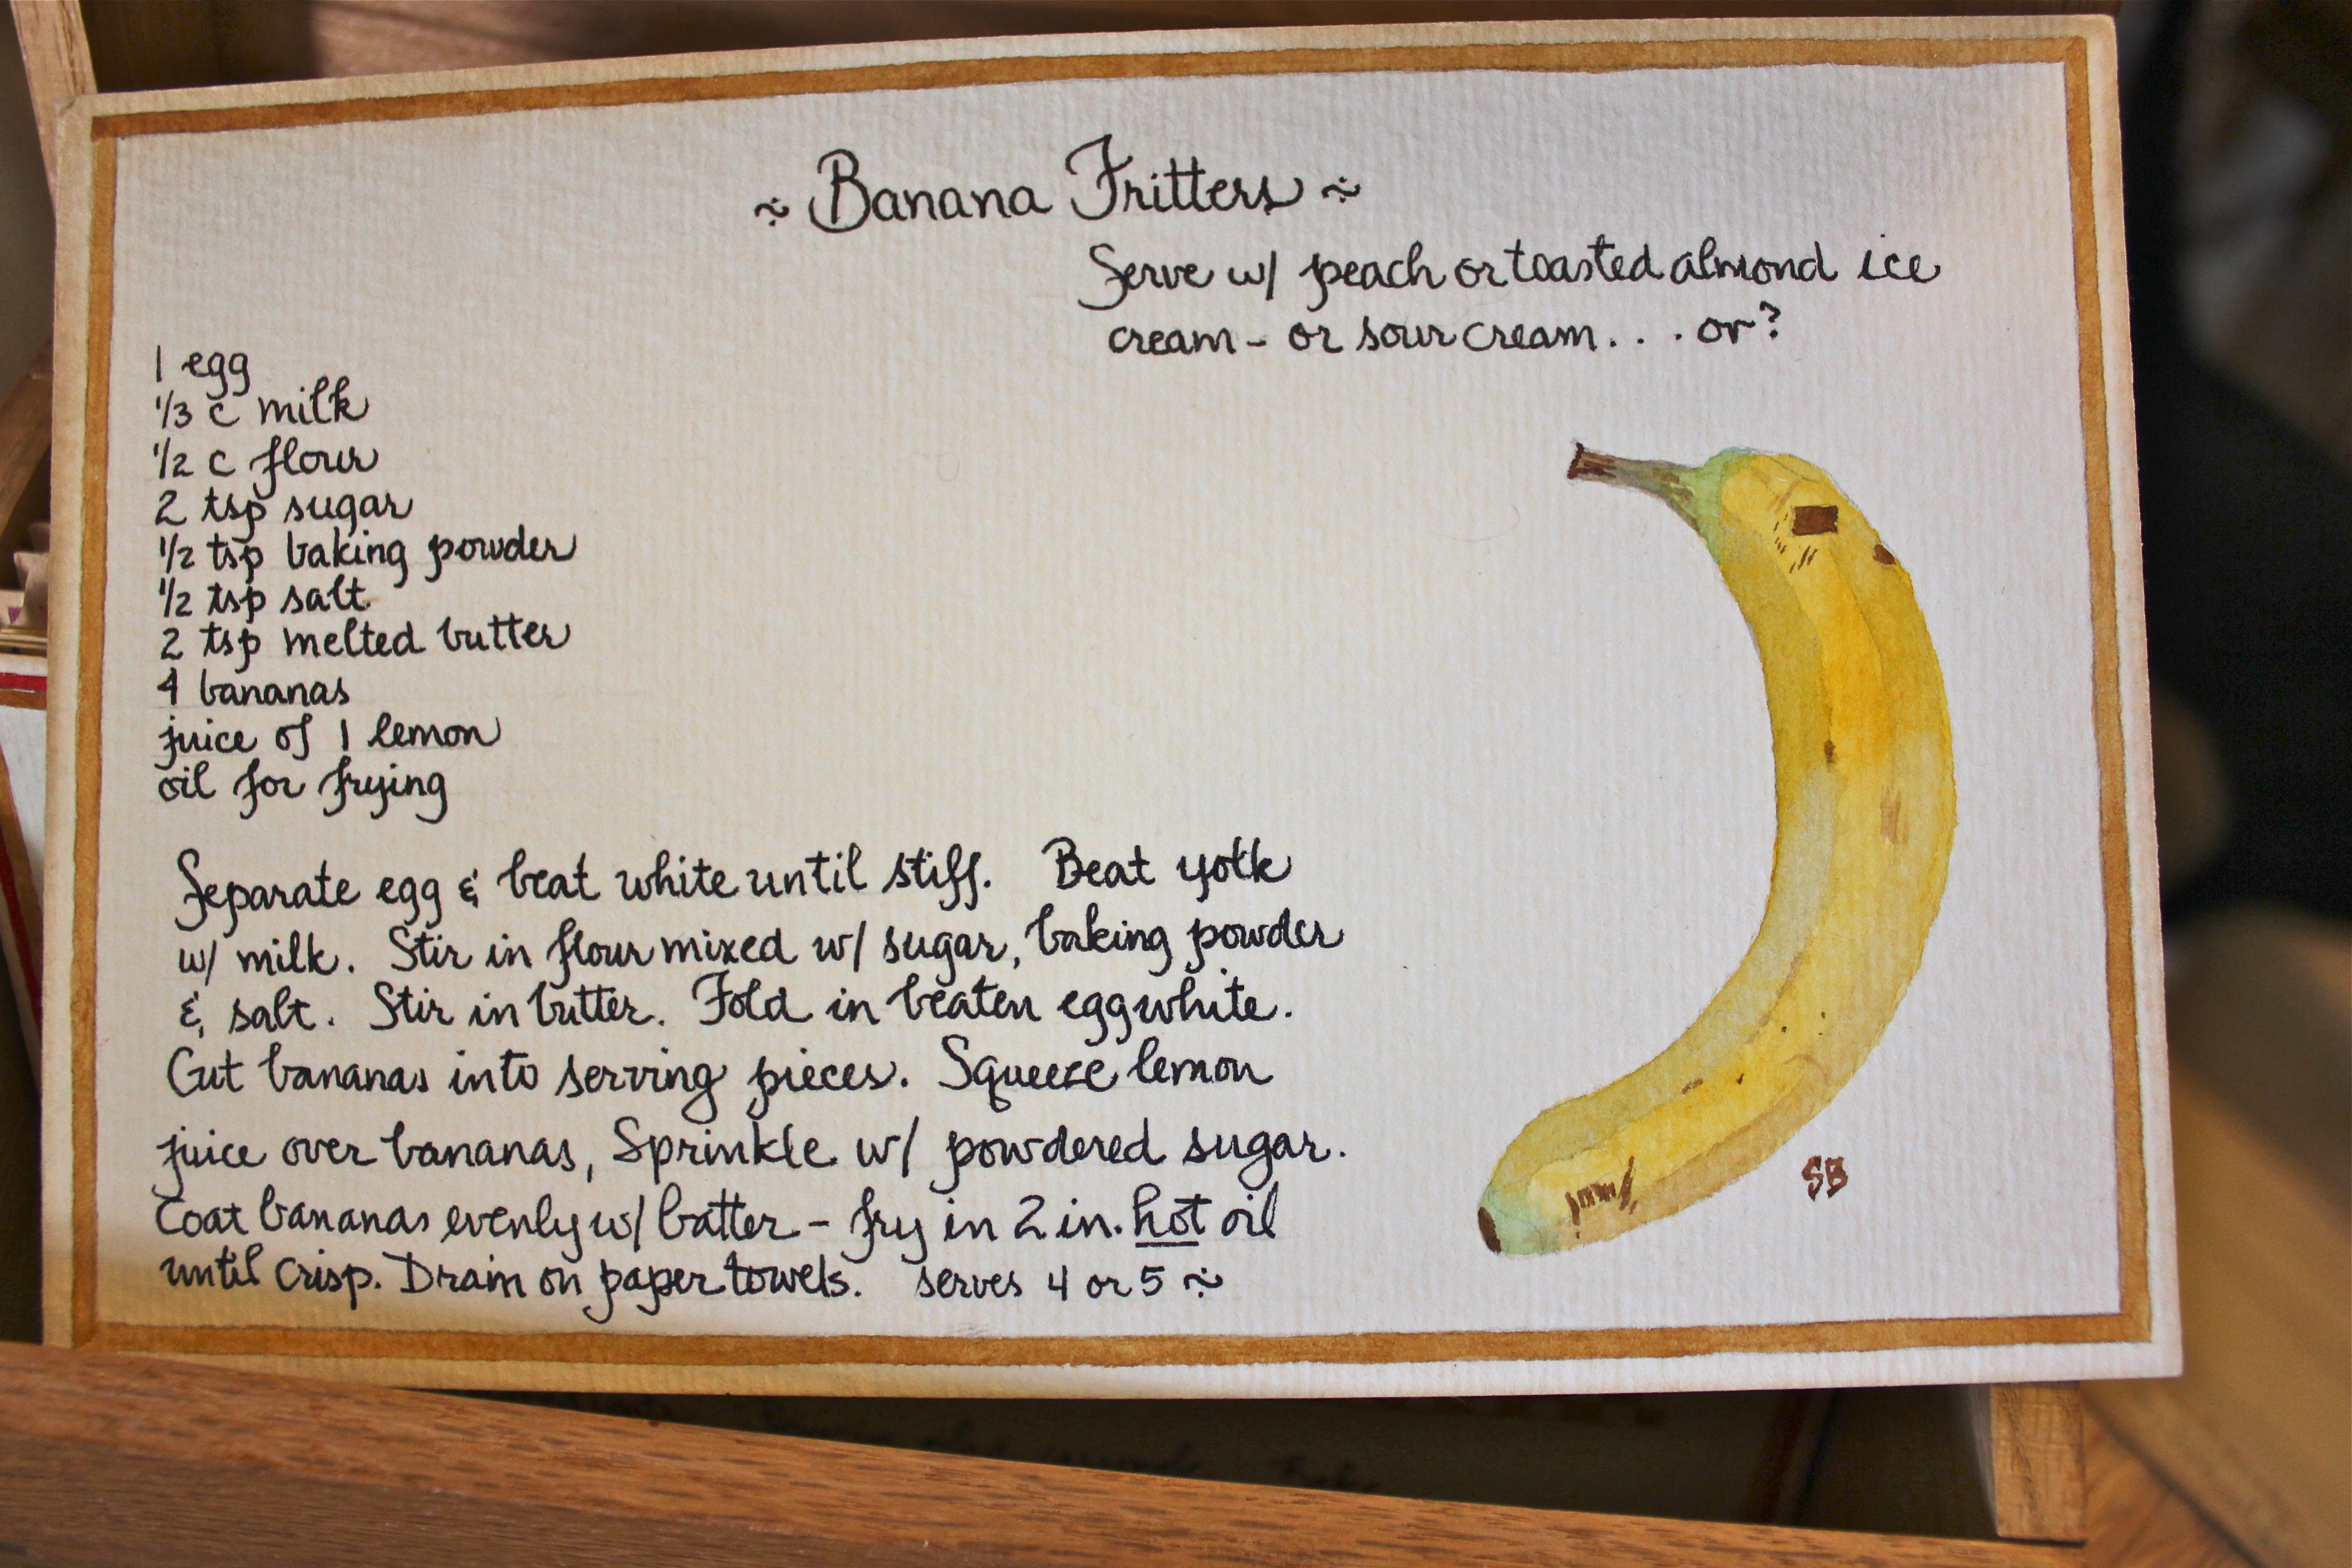 ~ Banana Fritters ~
Serve w/ peach or toasted almond ice
cream - or sour cream . . . or?
1 egg
1/3 c milk
1/2 c flour
2 tsp sugar
1/2 tsp baking powder
1/2 tsp salt
2 tsp melted butter
4 bananas
juice of 1 lemon
oil for frying
Separate egg & beat white until stiff. Beat yolk
w/ milk. Stir in flour mixed w/ sugar, baking powder
& salt. Stir in butter. Fold in beaten egg white.
Cut bananas into serving pieces. Squeeze lemon
juice over bananas, Sprinkle w/ powdered sugar.
Coat bananas evenly w/ batter - fry in 2 in. hot oil
until crisp. Drain on paper towels. serves 4 or 5 ~
SB